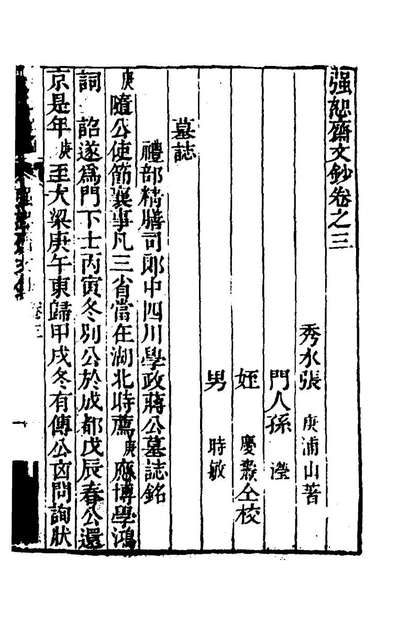 强恕齋文鈔卷之三
秀水張 庚浦山著
門人孫 瀅
姪 慶桑仝校
男 時敏
墓誌
禮部精膳司郎中四川學政蔣公墓誌銘
庚隨公使節襄事凡三省當在湖北時薦庚應博學鴻
詞 詔遂爲門下士丙寅冬別公於成都戊辰春公還
京是年庚至大梁庚午東歸甲戌冬有傳公凶問詢狀